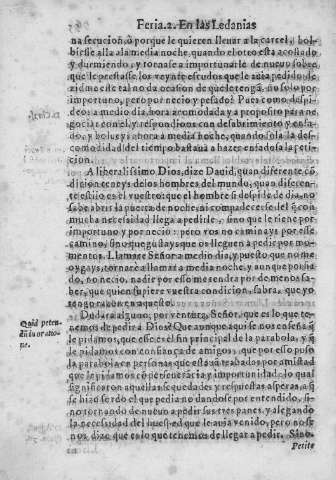 Feria.2. En las Ledanias
na secucion, ò porque le quieren lleuar a la carcel, bol-
uiesse alla a la media noche, quando el otro esta acostado
y durmiendo, y tornasse a importunarle de nuevo sobre
que le prestasse los veynte escudos que le auia pedido: le-
zid me este tal no da ocasion de que le tengã, no solo por
importuno, pero por necio y pesado? Pues como, despi-
deos a medio dia, hora acomodada y a proposito para ne-
gociar con el, y respondieos con desabrimiento y enfa-
do, y bolueys ahora a media noche, quando sola la des-
comodidad del tiempo bastaua a hazer enfadosa la peti-
cion.
A liberalissimo Dios, dize Dauid, quan diferente cõ
dicion teneys de los hombres del mundo, quan diferen-
te estilo es el vuestro: que el hombre si despide de dia, no
sabe abrir la puerta de noche, ni compadecerse del q̃ con
mucha necessidad llega a pedirle, sino que le tiene por
importuno y por necio: pero vos no caminays por esse
camino, sino que gustays que os lleguen a pedir por mo-
mentos. Llamare Señor a medio dia, y puesto que no me
oygays, tornarè a llamar a media noche, y aunque porfia-
do, no necio, nadie por esso me tendra por de menos sa-
ber, que quien supiere vuestra condicion, sabra que yo
tengo razon en aquesto.
Dudara alguno, por ventura, Señor, que es lo que te-
nemos de pedir a Dios? Que aunque aqui se nos enseña q̃
le pidamos, que esse es el fin principal de la parabola, y q̃
le pidamos con confiança de amigos, que por esso puso
la parabola en personas que estauã trabados por amistad
que le pidamos cõ perseuerãcia y importunidad, lo qual
significaron aquellas sequedades y respuestas asperas, a q̃
se hizo sordo el que pedia no dandose por entendido, si-
no tornando de nueuo a pedir sus tres panes, y alegando
la necessidad del huesped que le auia venido, pero no se
nos dize que es lo que tenemos de llegar a pedir. Sino,
Petite
Quid peten-
dũ in oratio-
ne.